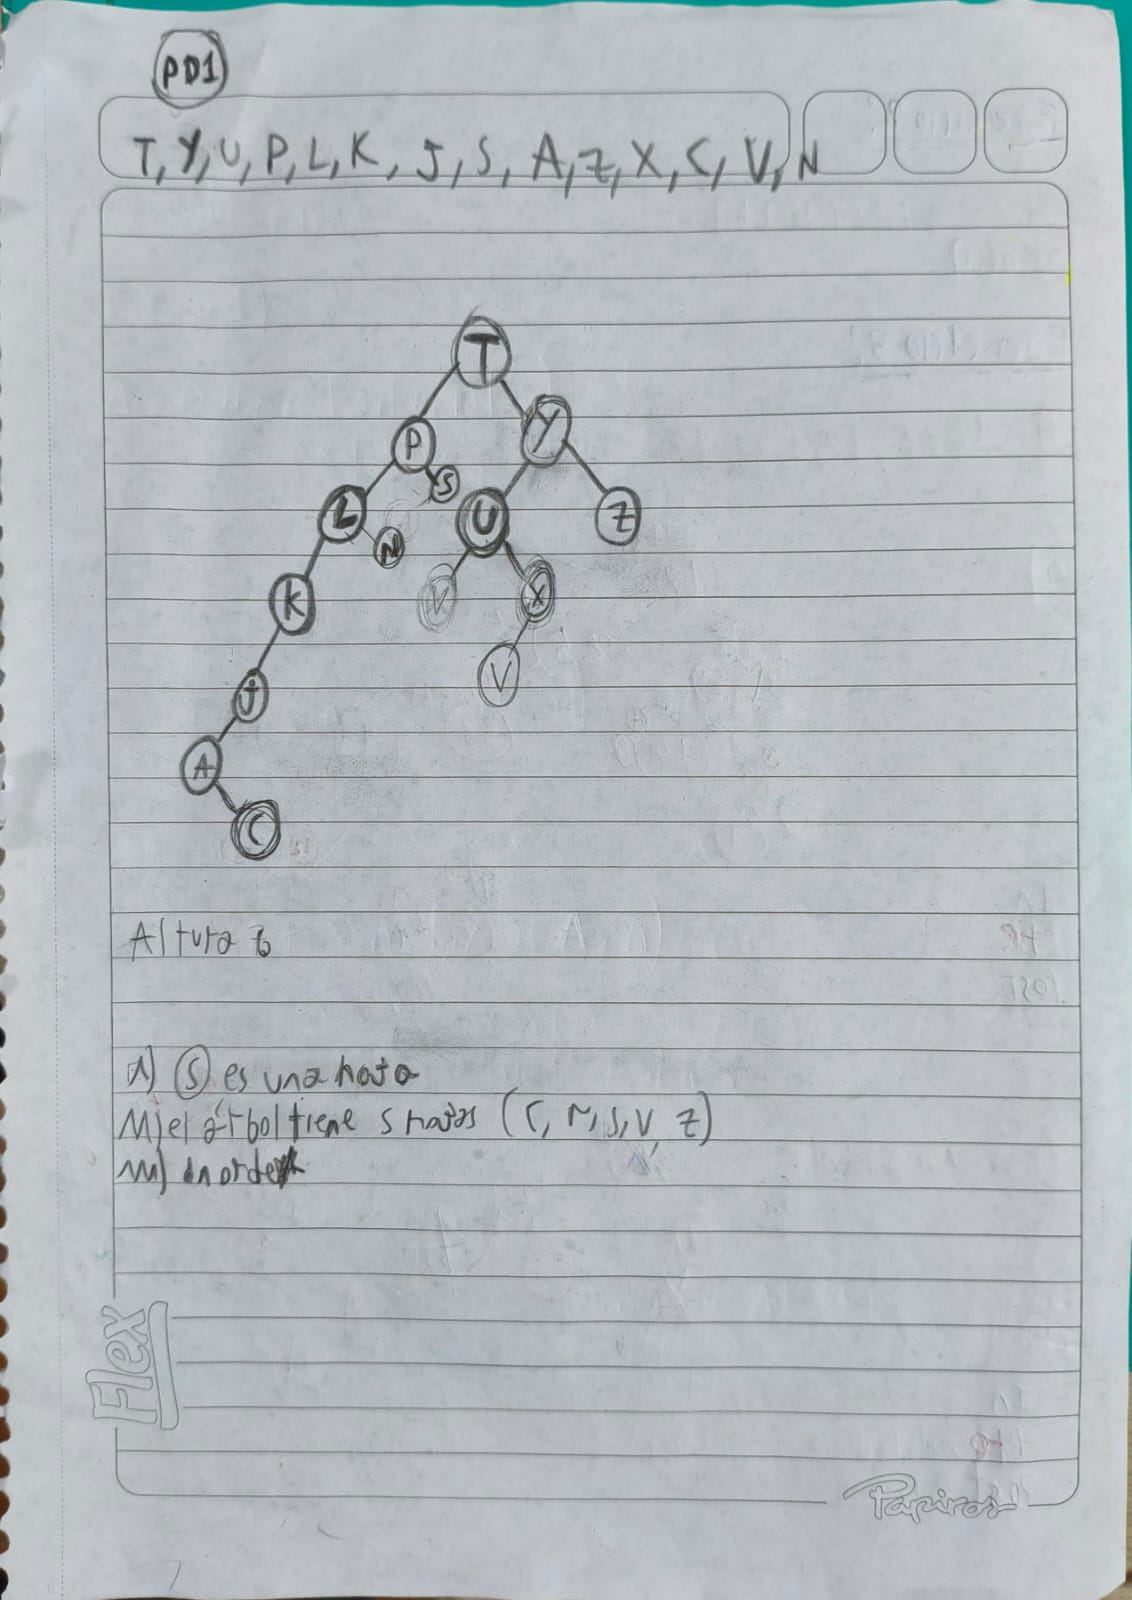 PD1
T, Y, U, P, L, K, J, S, A, Z, X, C, V, N
T
P
Y
S
L
U
Z
N
K
V
X
J
V
A
C
Altura 6
(S) es una hoja
el árbol tiene 5 hojas (C, N, S, V, Z)
Flex
Papiros